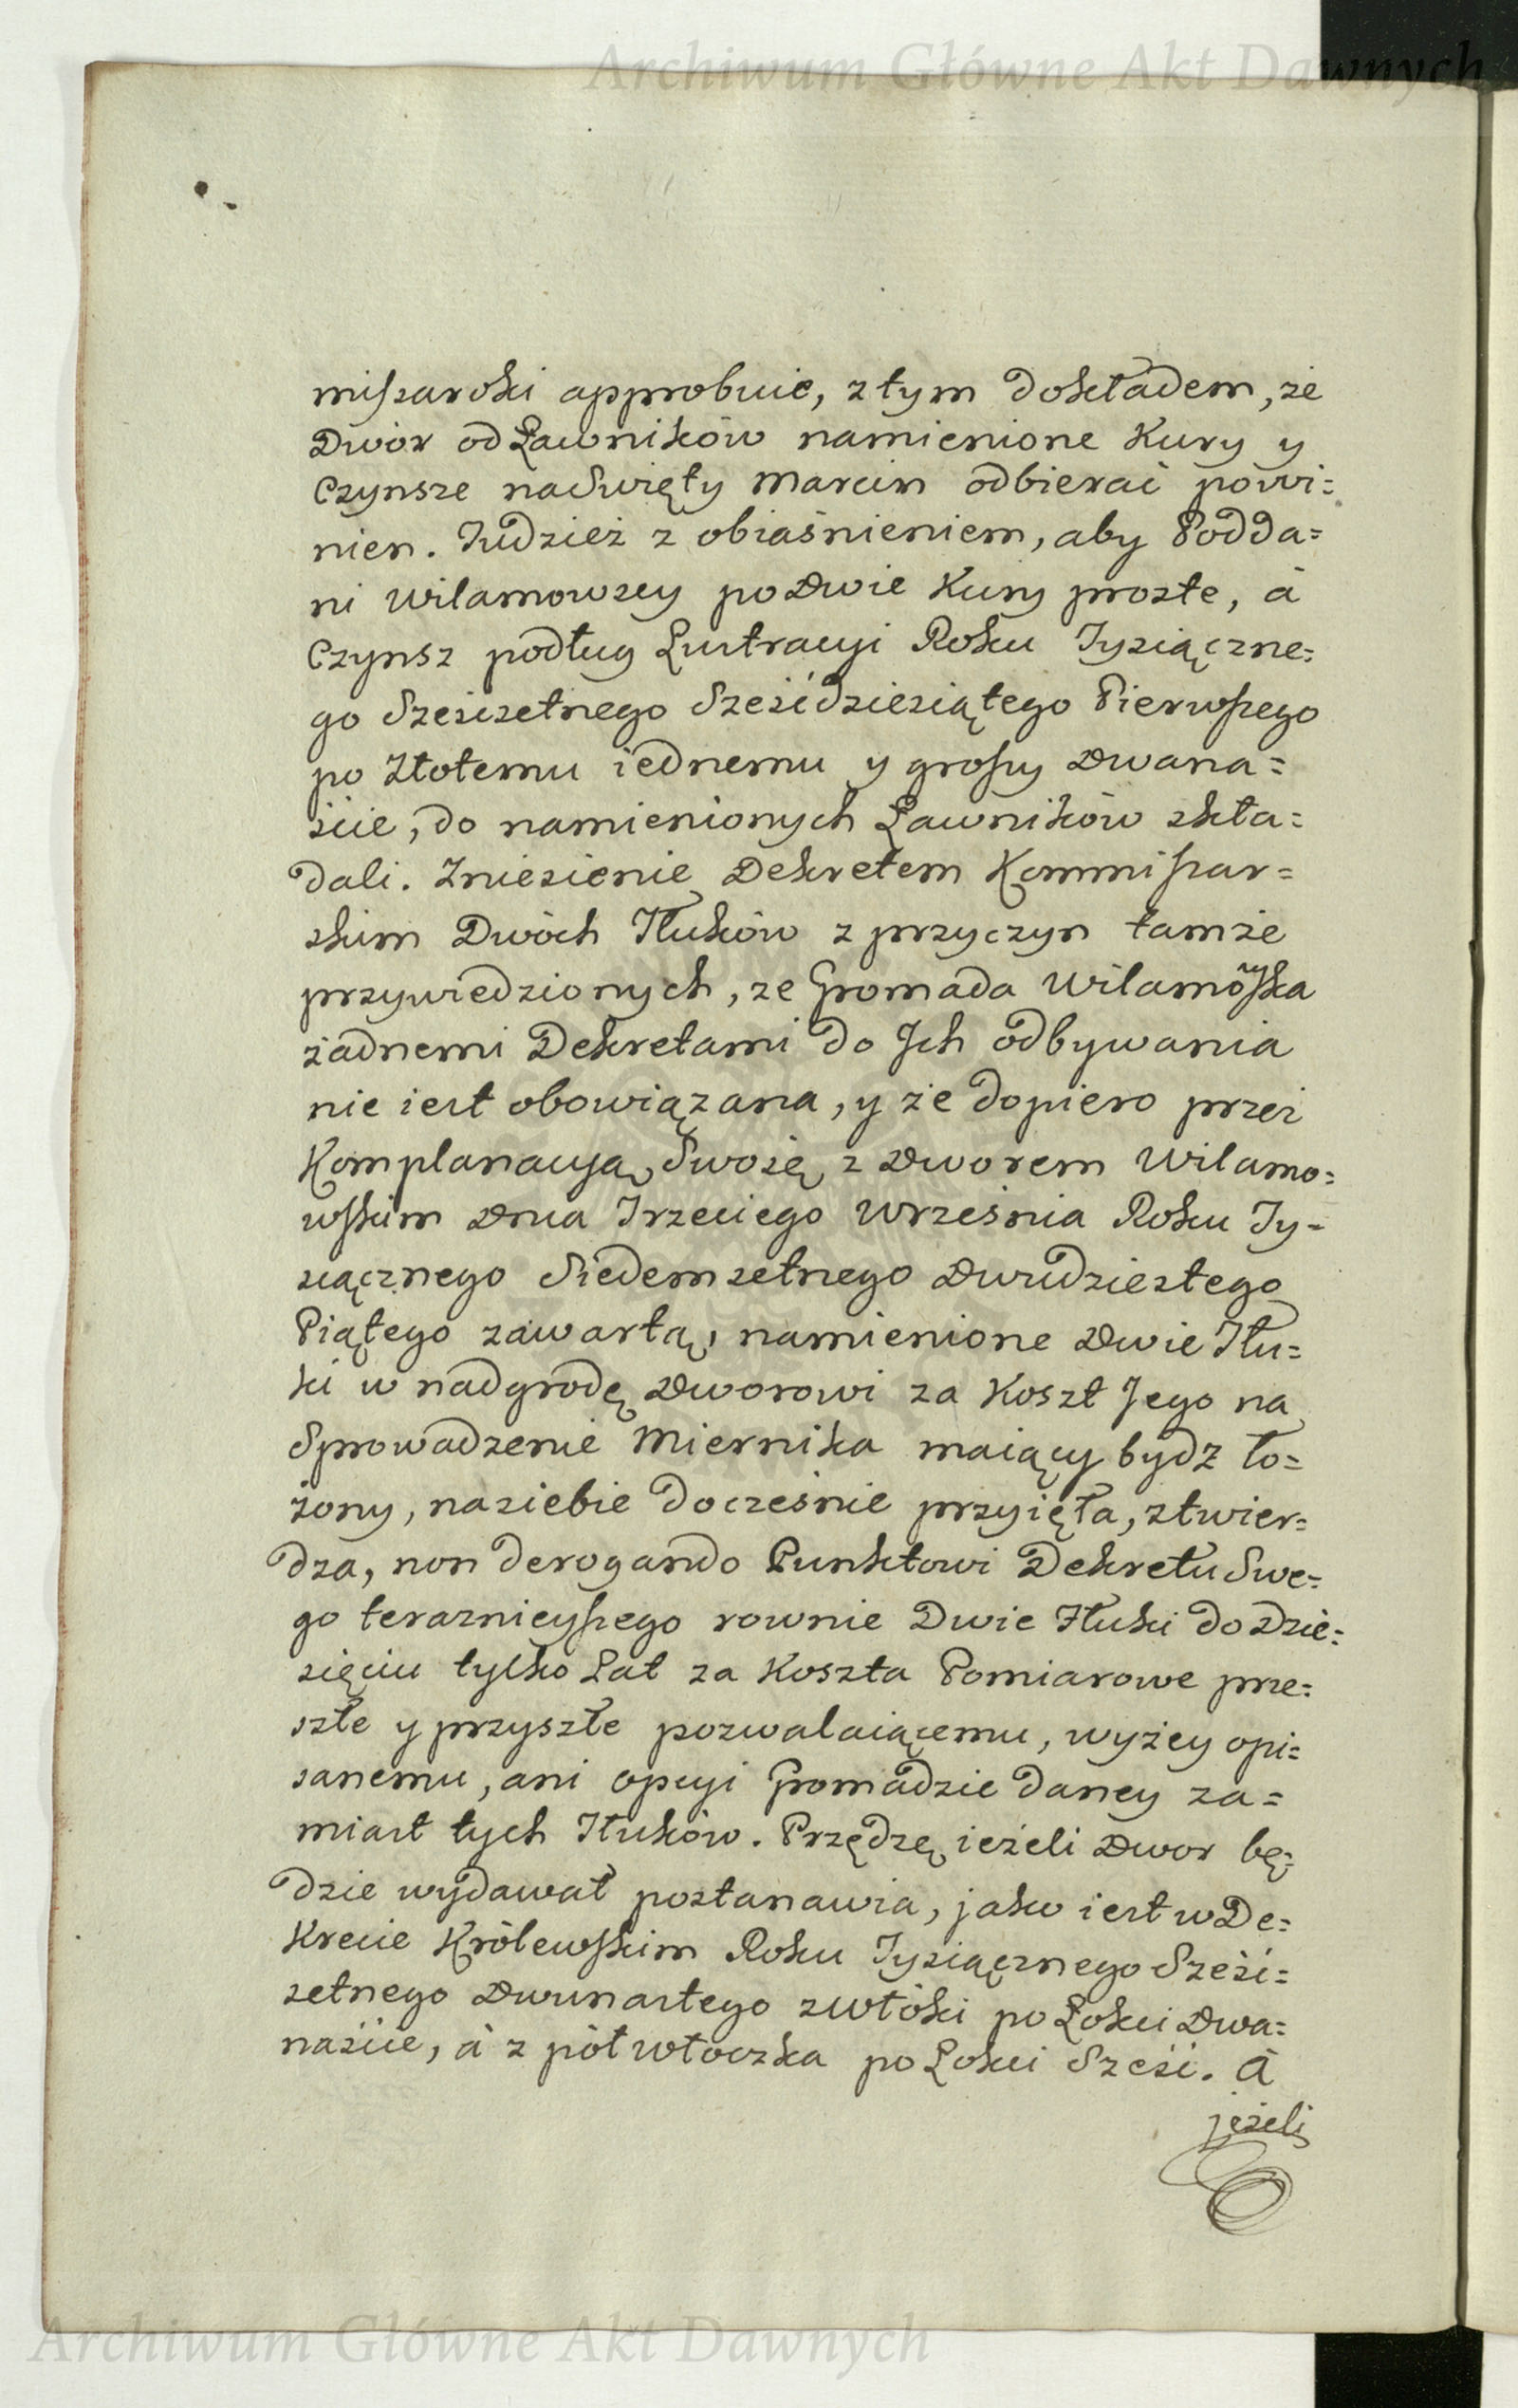 Archiwum Główne Akt Dawnych
miſsarski approbuie, z tym dokładem, że
Dwór od Ławników namienione Kury y
Czynsze na Swięty Marcin odbierać powi=
nien. Tudzież z obiaśnieniem, aby Podda=
ni Wilamowscy po Dwie Kury proste, á
Czynsz podług Lustracyi Roku Tysiączne=
go Sześćsetnego Sześćdziesiątego Pierwſzego
po Złotemu iednemu y groſzy Dwana=
ście, do namienionych Ławników skła=
dali. Zniesienie Dekretem Kommiſsar=
skim Dwóch Tłuków z przyczyn tamże
przywiedzionych, ze Gromada Wilamowſka
żadnemi Dekretami do Jch odbywania
nie iest obowiązana, y że dopiero przez
Komplanacyą Swoię z Dworem Wilamo=
wſkim Dnia Trzeciego Września Roku Ty=
siącznego Siedemsetnego Dwudziestego
Piątego zawartą, namienione Dwie Tłu=
ki w nadgrodę Dworowi za Koszt Jego na
Sprowadzenie Miernika maiący bydz ło=
żony, na siebie docześnie przyięła, stwier=
dza, non derogando Punktowi Dekretu Swe=
go teraznieyſzego rownie Dwie Tłuki do Dzie=
sięciu tylko Lat za Koszta Pomiarowe prze=
szłe y przyszłe pozwalaiącemu, wyżey opi=
sanemu, ani opcyi Gromadzie daney za=
miast tych Tłuków. Przędzę ieżeli Dwor bę=
dzie wydawał postanawia, jako iest w De=
krecie Królewſkim Roku Tysiącznego Sześć=
setnego Dwunastego z włóki po Łokci Dwa=
naście, á z pół włoczka po Łokci Sześć. A
jeżeli
Archiwum Główne Akt Dawnych